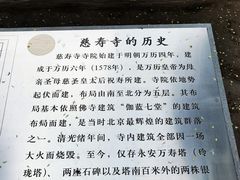 慈寿寺的历史
慈寿寺寺院始建于明朝万历四年,建
成于万历六年(1578年),是万历皇帝为母
亲圣母慈圣皇太后祝寿所建。寺院依地势
起伏而建,布局由南至北分为五层。其布
局基本依照佛寺建筑“伽蓝七堂”的建筑
布局而建,是当时北京最辉煌的建筑群落
之一。清光绪年间,寺内建筑全部因一场
大火而烧毁。至今,仅存永安万寿塔(玲
珑塔)、两座石碑以及塔南百米外的两株银